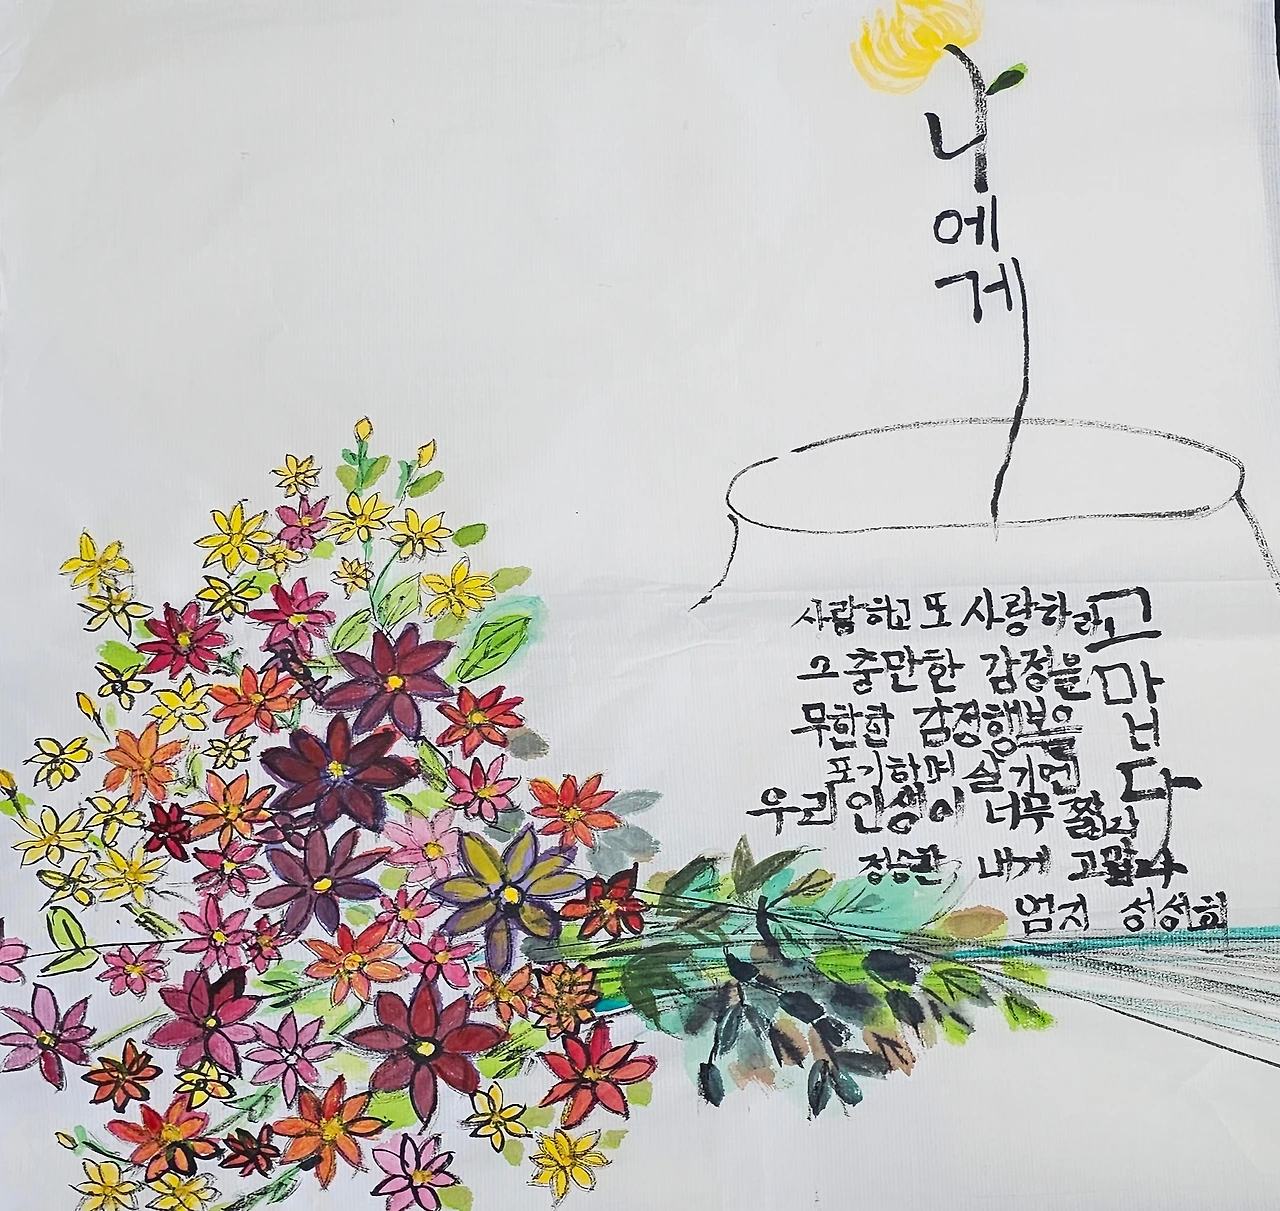 나에게
사랑하고 또 사랑하라
그 충만한 감정을
무한한 감정행복을
포기하며 살기엔
우리 인생이 너무 짧다
내게 고맙다
고마 너다
엄지 성성희